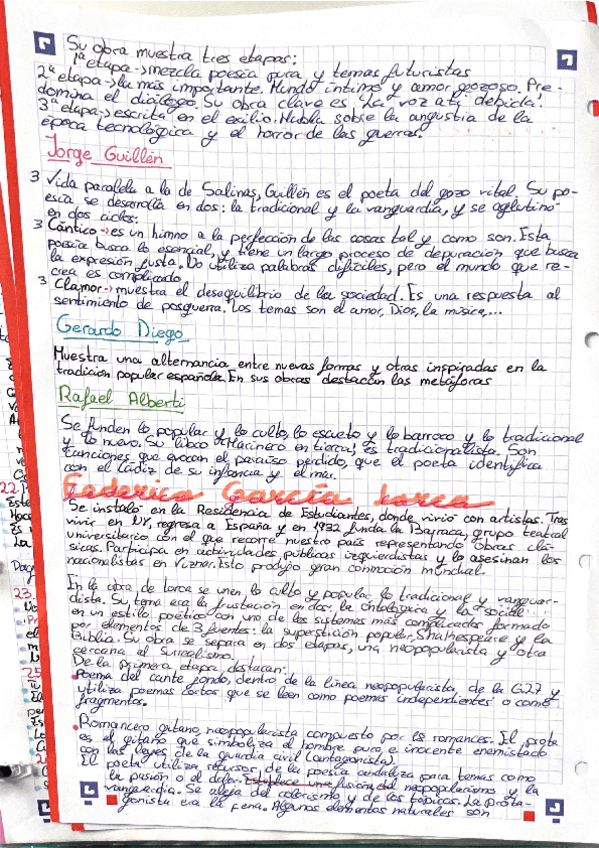 Su obra muestra tres etapas:
1ª etapa -> mezcla poesía pura y temas futuristas
2ª etapa -> la más importante. Mundo íntimo y amor gozoso. Pre-
domina el diálogo. Su obra clave es "La voz a ti debida".
3ª etapa -> escrita en el exilio. Habla sobre la angustia de la
época tecnológica y el horror de las guerras.
Jorge Guillén
3 Vida paralela a la de Salinas, Guillén es el poeta del gozo vital. Su po-
esía se desarolla en dos: la tradicional y la vanguardia, y se aglutinó
en dos ciclos:
3 Cántico -> es un himno a la perfección de las cosas tal y como son. Esta
poesía busca lo esencial, y tiene un largo proceso de depuración que busca
la expresión justa. No utiliza palabras difíciles, pero el mundo que re-
crea es complicado.
3 Clamor -> muestra el desequilibrio de la sociedad. Es una respuesta al
sentimiento de posguerra. Los temas son el amor, Dios, la música,...
Gerardo Diego
Muestra una alternancia entre nuevas formas y otras inspiradas en la
tradición popular española. En sus obras destacan las metáforas
Rafael Alberti
Se funden lo popular y lo culto, lo escueto y lo barroco y lo tradicional
y lo nuevo. Su libro "Marinero en tierra", es tradicionalista. Son
canciones que evocan el paraíso perdido, que el poeta identifica
con el Cádiz de su infancia y el mar.
Federico García Lorca
Se instaló en la Residencia de Estudiantes, donde vivió con artistas. Tras
vivir en NY, regresa a España y en 1932 funda la Barraca, grupo teatral
universitario con el que recorre nuestro país representando obras clá-
sicas. Participa en actividades públicas izquierdistas y lo asesinan los
nacionalistas en Viznar. Esto produjo gran conmoción mundial.
En la obra de Lorca se unen lo culto y popular, lo tradicional y vanguar-
dista. Su tema era la frustación en dos: la ontológica y la social
en un estilo poético con uno de los sistemas más complicados formado
por elementos de 3 fuentes: la superstición popular, Shakespeare y la
Biblia. Su obra se separa en dos etapas, una neopopularista y otra
cercana al Surrealismo.
De la primera etapa, destacan:
Poema del cante jondo, dentro de la línea neopopularista, de la G27 y
utiliza poemas cortos que se leen como poemas independientes o como
fragmentos.
Romancero gitano, neopopularista compuesto por 18 romances. El prota
es el gitano que simboliza el hombre puro e inocente enemistado
con las leyes de la guardia civil (antagonista)
El poeta utiliza recursos de la poesía andaluza para temas como
la pasión o el dolor. Establece una fusión del neopopularismo y la
vanguardia. Se aleja del colorismo y de los tópicos. La prota-
gonista era la pena. Algunos elementos naturales son
22
23.
25